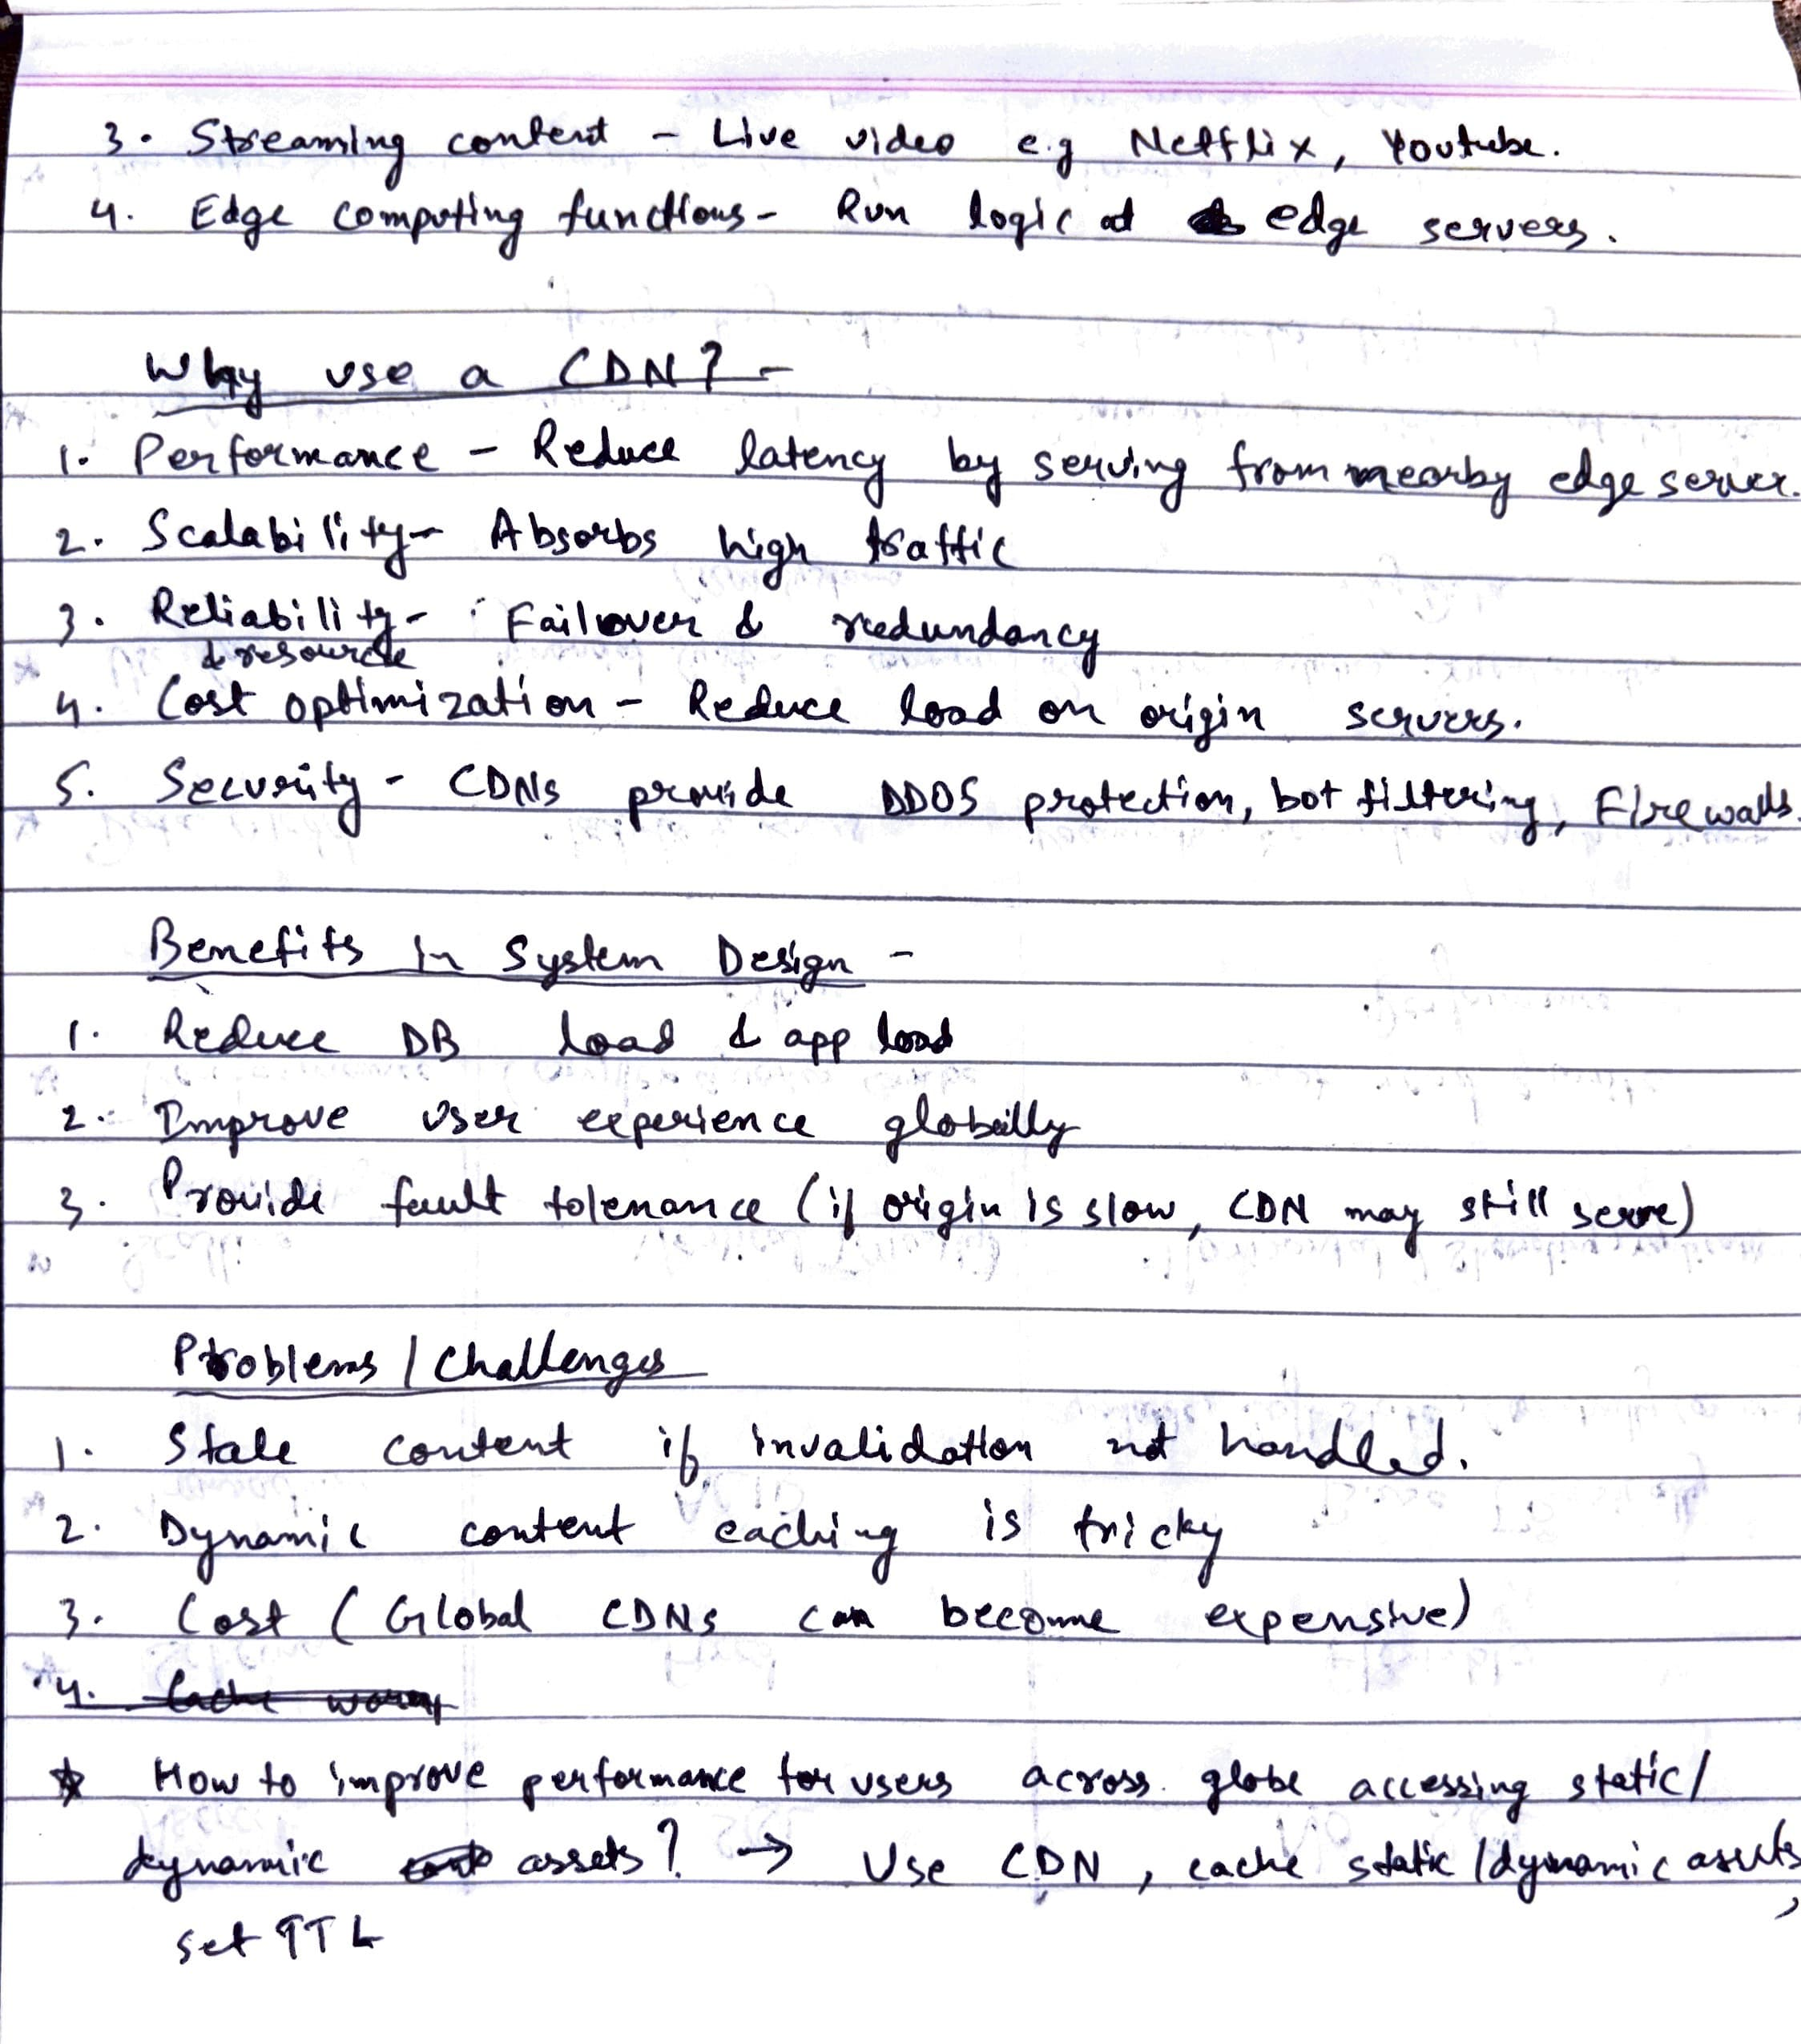 3. Streaming content - Live video e.g Netflix, Youtube.
4. Edge computing functions - Run logic at edge servers.
Why use a CDN? -
1. Performance - Reduce latency by serving from nearby edge server.
2. Scalability - Absorbs high traffic
3. Reliability - Failover & redundancy
& resource
4. Cost optimization - Reduce load on origin servers.
5. Security - CDNs provide DDOS protection, bot filtering, Firewalls.
Benefits in System Design -
1. Reduce DB load & app load
2. Improve user experience globally
3. Provide fault tolerance (if origin is slow, CDN may still serve)
Problems / Challenges
1. Stale content if invalidation not handled.
2. Dynamic content caching is tricky
3. Cost (Global CDNs can become expensive)
4. Cache
* How to improve performance for users across globe accessing static/
dynamic assets? → Use CDN, cache static/dynamic assets,
set TTL